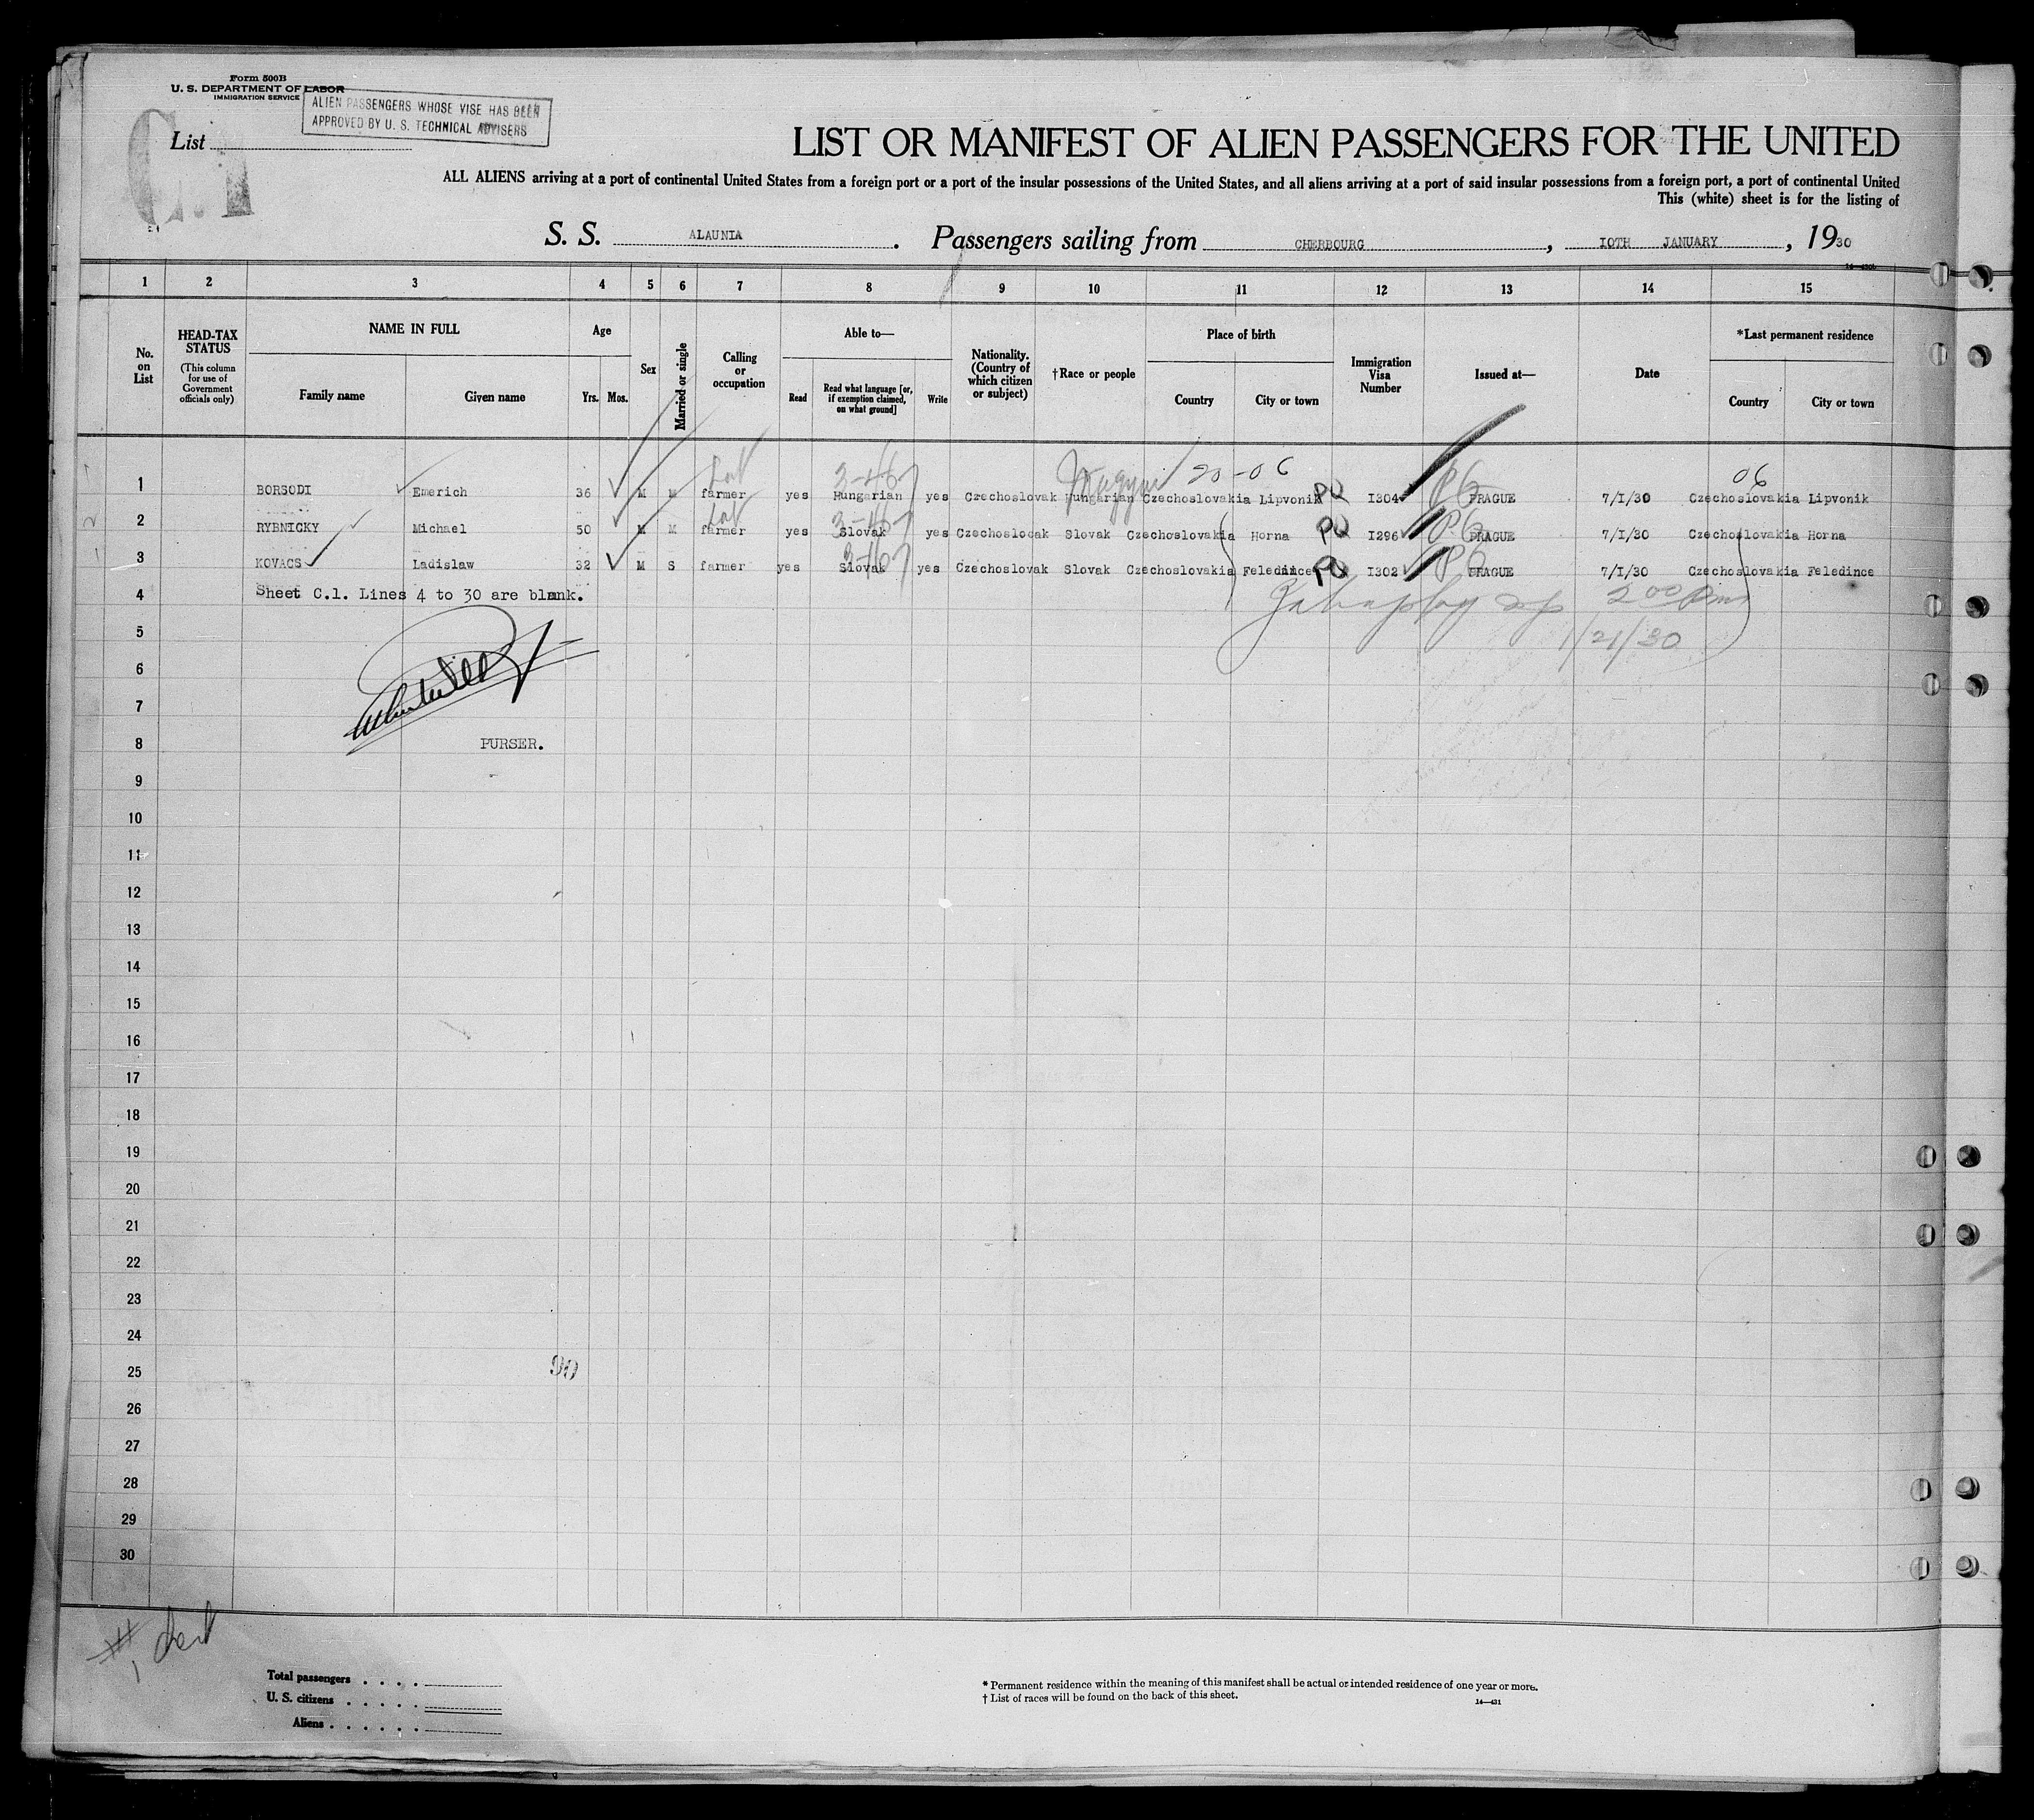 Form 500B
U. S. DEPARTMENT OF LABOR
IMMIGRATION SERVICE
ALIEN PASSENGERS WHOSE VISE HAS BEEN
APPROVED BY U. S. TECHNICAL ADVISERS
List
C.1
LIST OR MANIFEST OF ALIEN PASSENGERS FOR THE UNITED
ALL ALIENS arriving at a port of continental United States from a foreign port or a port of the insular possessions of the United States, and all aliens arriving at a port of said insular possessions from a foreign port, a port of continental United
This (white) sheet is for the listing of
S. S. ALAUNIA. Passengers sailing from CHERBOURG, 10TH JANUARY, 1930
1 2 3 4 5 6 7 8 9 10 11 12 13 14 15
No. on List
HEAD-TAX STATUS (This column for use of Government officials only)
NAME IN FULL
Family name Given name
Age
Yrs. Mos.
Sex
Married or single
Calling or occupation
Able to—
Read Read what language [or, if exemption claimed, on what ground] Write
Nationality. (Country of which citizen or subject)
†Race or people
Place of birth
Country City or town
Immigration Visa Number
Issued at—
Date
*Last permanent residence
Country City or town
3-467 Magyar 20-06 06
1 BORSODI Emerich 36 M M farmer yes Hungarian yes Czechoslovak Hungarian Czechoslovakia Lipvonik PQ I304 P6 PRAGUE 7/I/30 Czechoslovakia Lipvonik
2 RYBNICKY Michael 50 M M farmer yes Slovak yes Czechoslocak Slovak Czechoslovakia Horna PQ I296 P6 PRAGUE 7/I/30 Czechoslovakia Horna
3 KOVACS Ladislaw 32 M S farmer yes Slovak yes Czechoslovak Slovak Czechoslovakia Feledince PQ I302 P6 PRAGUE 7/I/30 Czechoslovakia Feledince
4 Sheet C.1. Lines 4 to 30 are blank.
2 00 Pm
5
1/21/30
6
7
8 PURSER.
9
10
11
12
13
14
15
16
17
18
19
20
21
22
23
24
25
90
26
27
28
29
30
Total passengers
U. S. citizens
Aliens
* Permanent residence within the meaning of this manifest shall be actual or intended residence of one year or more.
† List of races will be found on the back of this sheet.
14—431